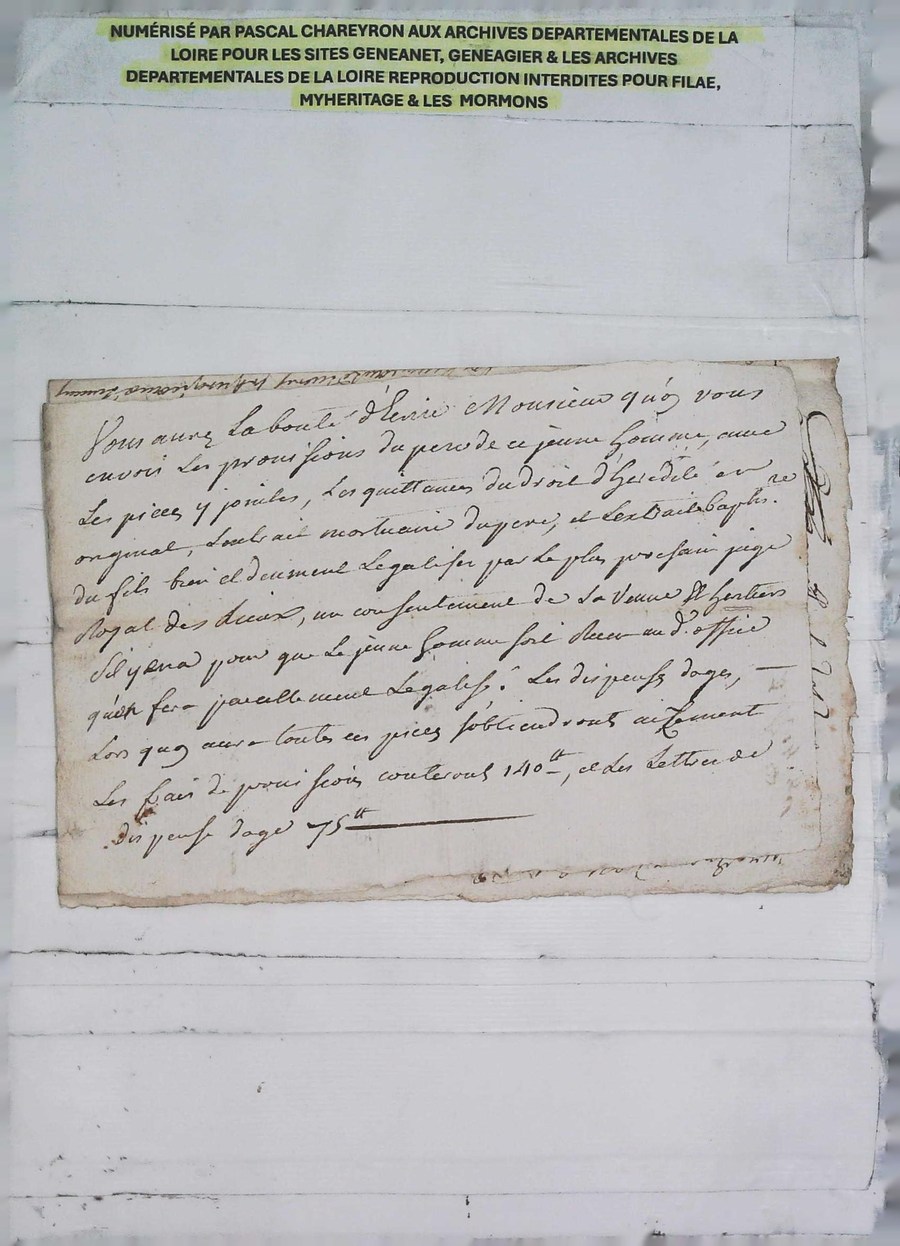 NUMÉRISÉ PAR PASCAL CHAREYRON AUX ARCHIVES DEPARTEMENTALES DE LA
LOIRE POUR LES SITES GENEANET, GENEAGIER & LES ARCHIVES
DEPARTEMENTALES DE LA LOIRE REPRODUCTION INTERDITES POUR FILAE,
MYHERITAGE & LES MORMONS
Vous aurez La bonté d'Ecrire Monsieur qu'on vous
envoie Les provisions du pere de ce jeune homme, avec
Les pieces y jointes, Les quittances du droit d'heredité en
original, L'extrait mortuaire du pere, et L'extrait baptis.re
du fils bien et deument Legalisez par Le plus prochain juge
Royal des Lieux, un consentement de La veuve & heritiers
S'il y en a pour que Le jeune homme soit Receu aud. office
qu'on fera pareillement Legaliser. Les dispenses d'ages, —
Lors qu'on aura toutes ces pieces s'obtiendront aizement
Les frais de provisions couteront 140tt, et Les Lettres de
dispense d'age 75tt